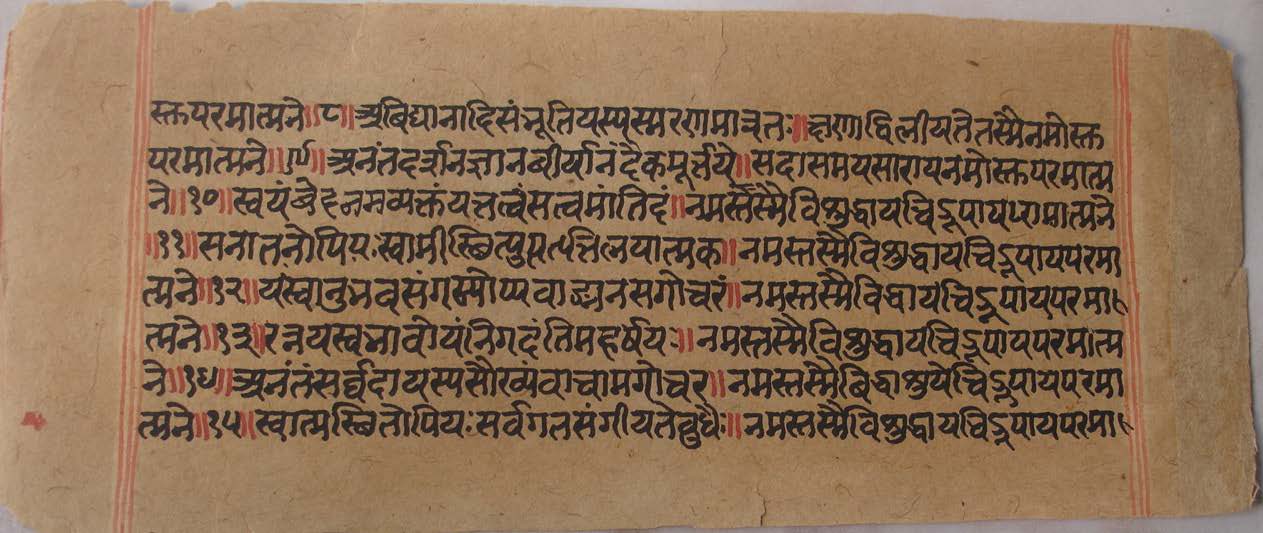 स्तपरमात्मने॥८॥अबिद्यानादिसंभूतियस्यस्मरणमात्रतः॥क्षणाद्विलीयतेतस्मैनमोस्त
परमात्मने॥९॥अनंतदर्शनज्ञानबीर्यानंदैकमूर्त्तये॥सदासमयसारायनमोस्तपरमात्म
ने॥१०॥स्वयं मव्यक्तंयत्तत्वंसत्वमांतिदं॥नमस्तस्मैविशुद्धायचिद्रूपायपरमात्मने
॥११॥सनातनोपियःस्वामी त्मक॥नमस्तस्मैविशुद्धायचिद्रूपायपरमा
त्मने॥१२॥यंस्वानुभवसंगम्योप्यवाङ्मनसगोचरं॥नमस्तस्मैविद्धायचिद्रूपायपरमा
त्मने॥१३॥रत्नत्रयस्वभावोयंनिगदंतिमहर्षयः॥नमस्तस्मैविशुद्धायचिद्रूपायपरमात्म
ने॥१४॥अनंतंसर्व्वदायस्यसौख्यंवाचामगोचर॥नमस्तस्मै चिद्रूपायपरमा
त्मने॥१५॥स्वात्मस्थितोपियःसर्वगतसंगीयतेबुधैः॥नमस्तस्मैविशुद्धायचिद्रूपायपरमा